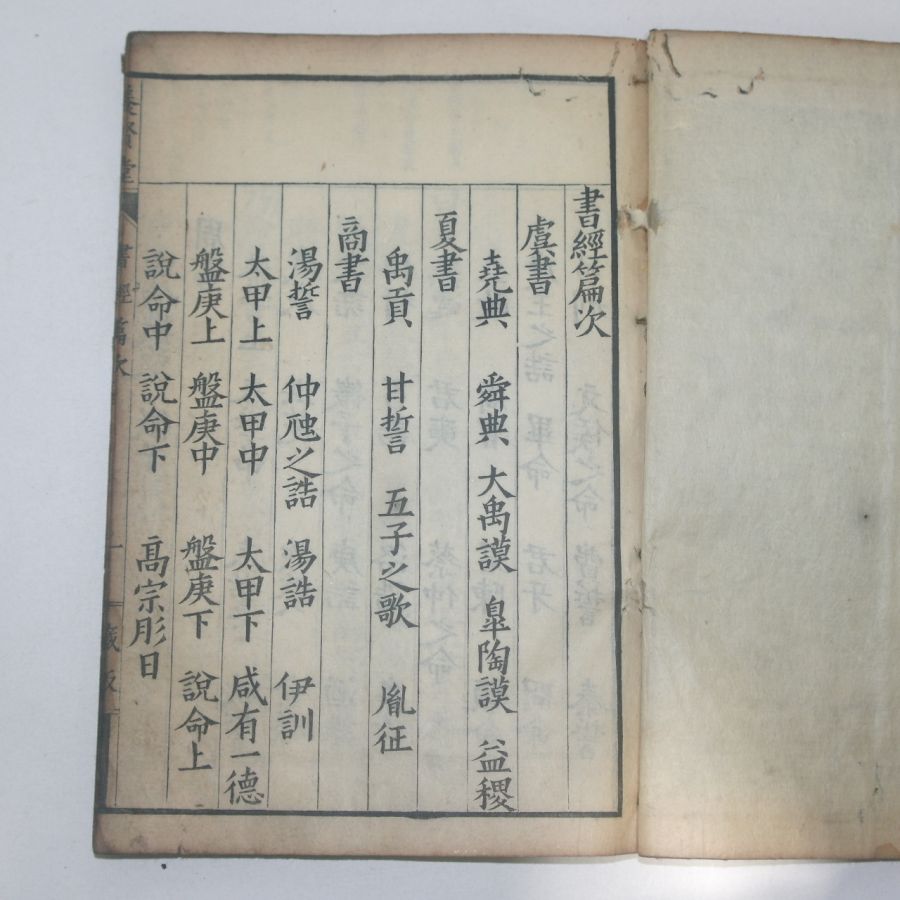 書經篇次
虞書
堯典 舜典 大禹謨 皐陶謨 益稷
夏書
禹貢 甘誓 五子之歌 胤征
商書
湯誓 仲虺之誥 湯誥 伊訓
太甲上 太甲中 太甲下 咸有一德
盤庚上 盤庚中 盤庚下 說命上
說命中 說命下 高宗肜日
賢堂 書經篇次 一 藏板